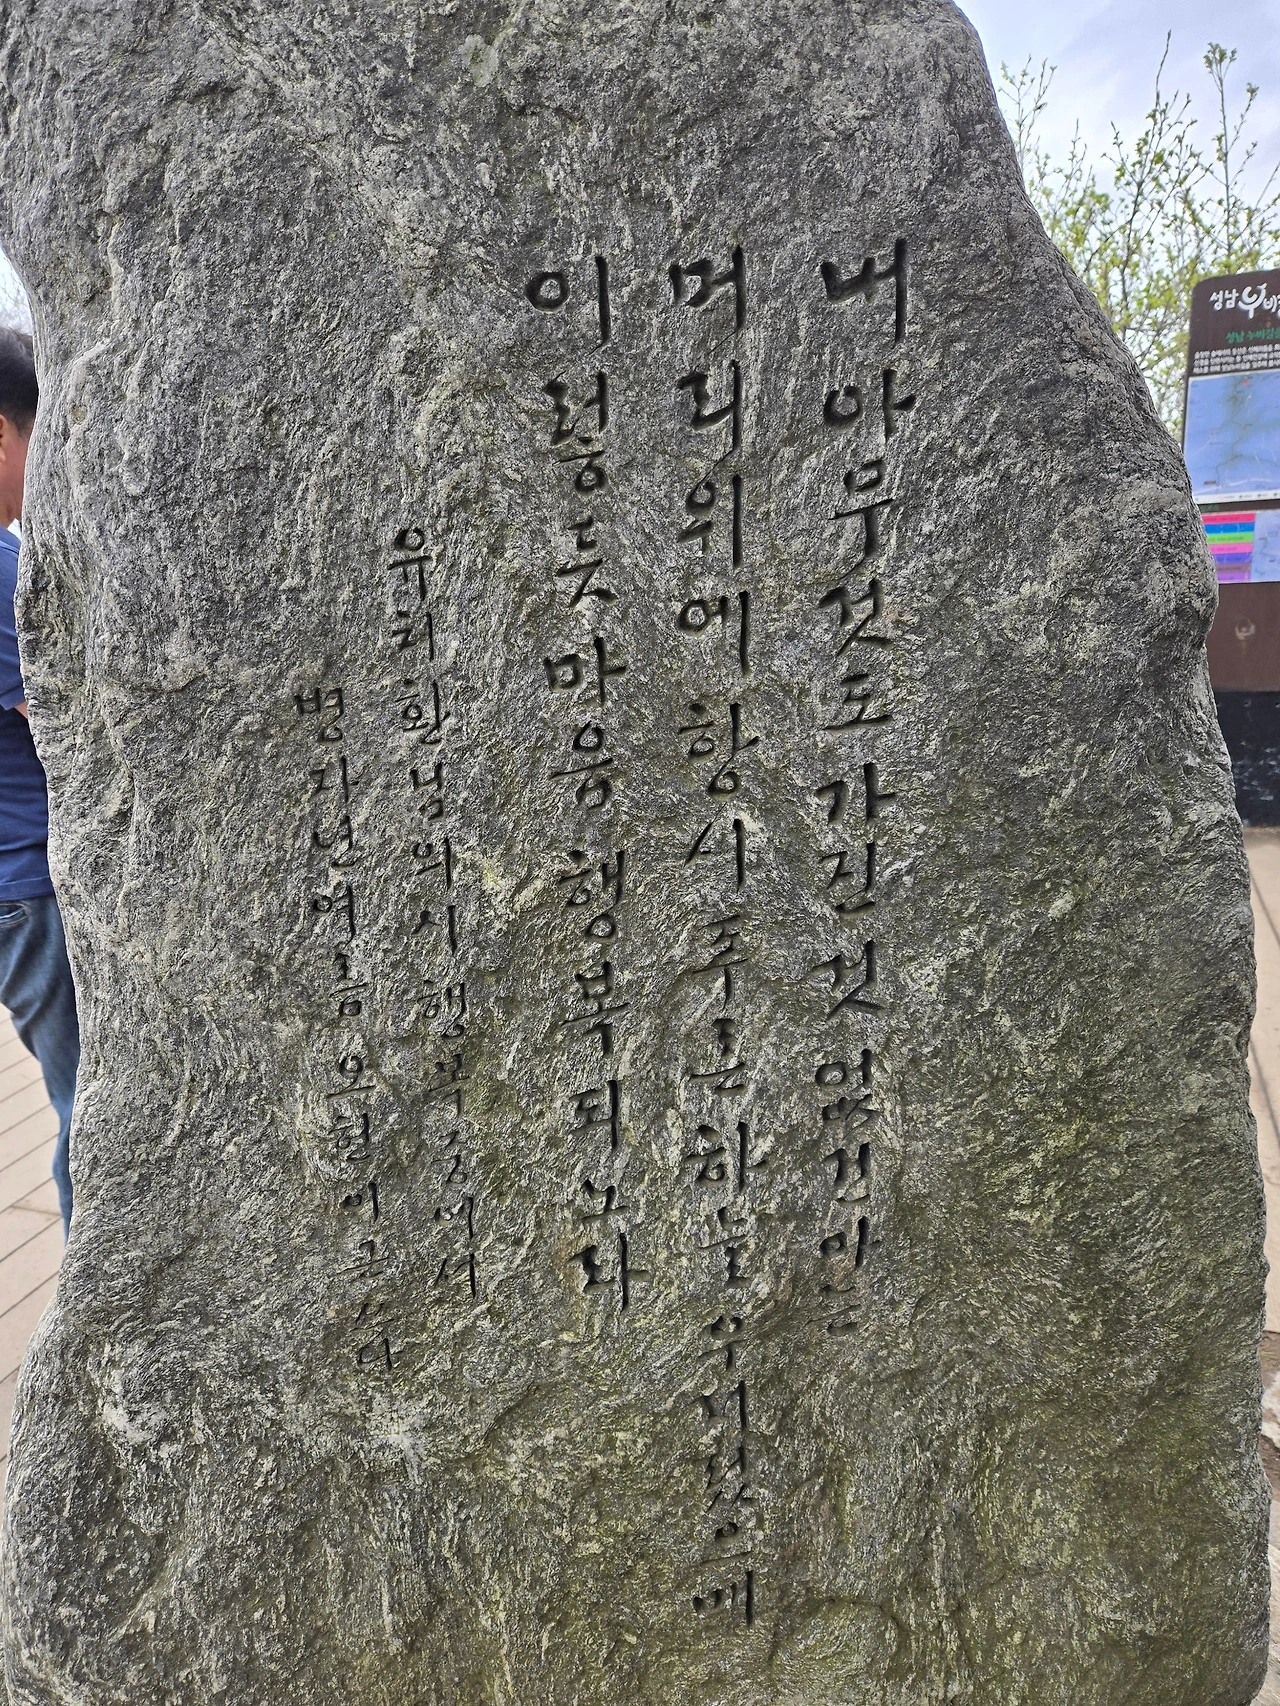 내 아무것도 가진 것 없건만은
머리 위에 항시 푸른 하늘 우러렀으매
이렇듯 마음 행복되노라
유치환님의 시 행복 중에서
병자년 여름 오현이 근쓰다
성남누비길
성남 누비길